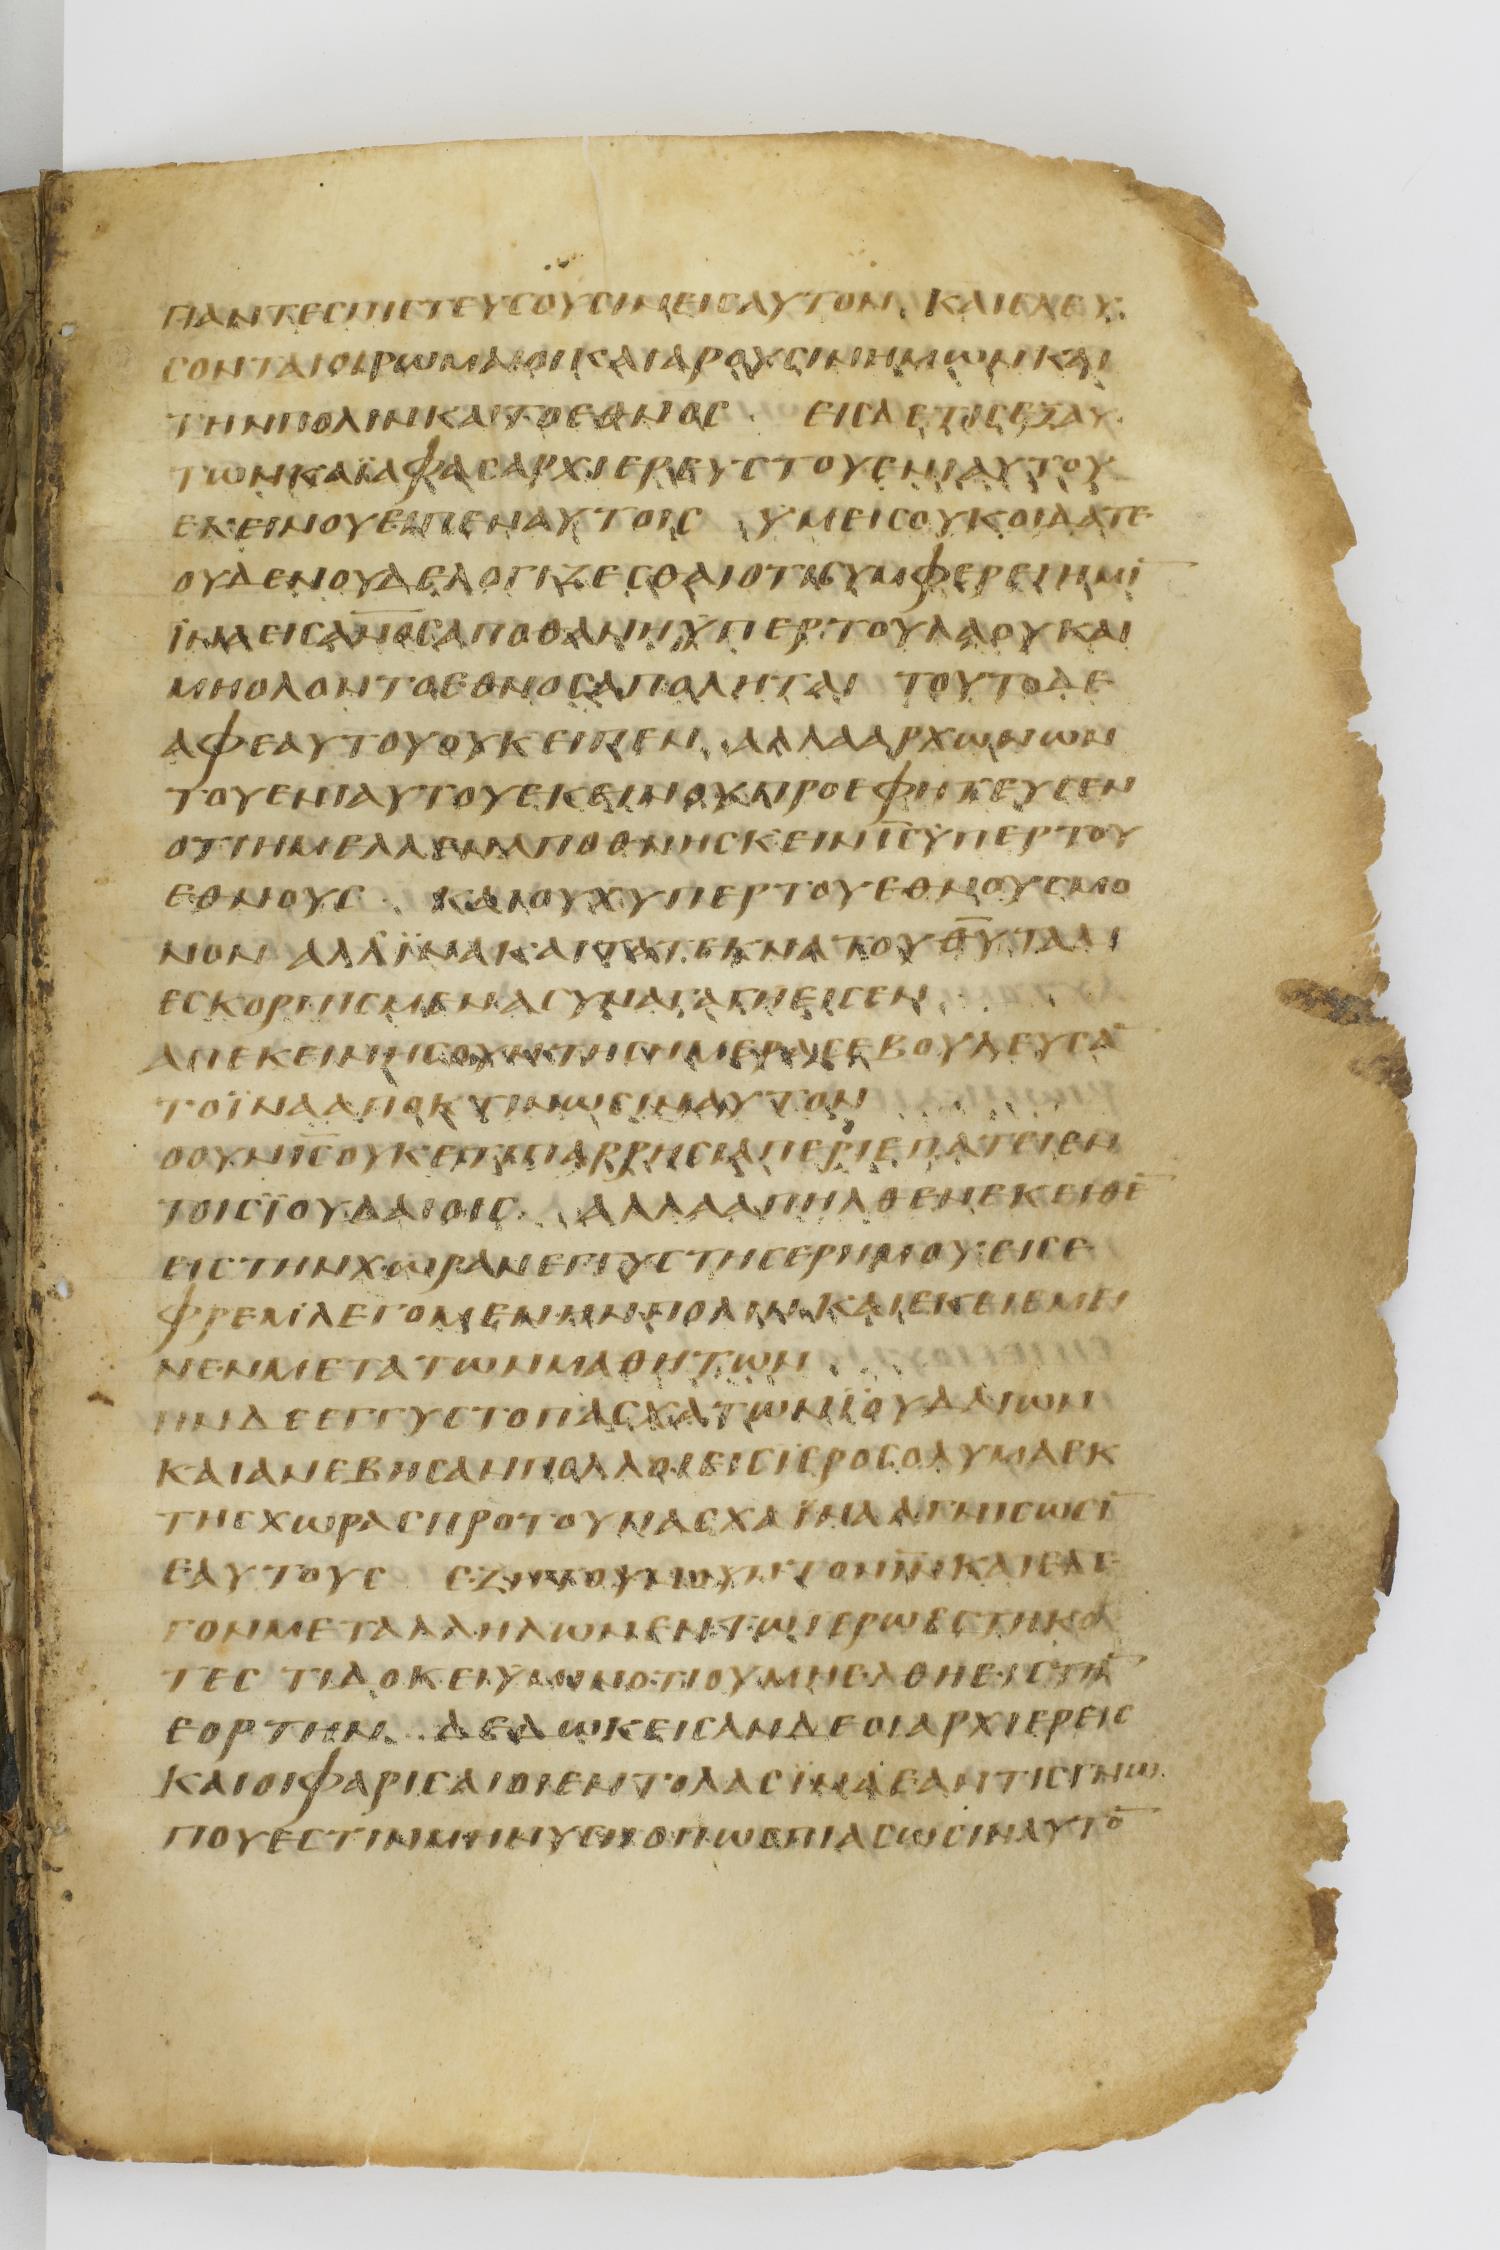 ΠΑΝΤΕСΠΙСΤΕΥСΟΥСΙΝΕΙСΑΥΤΟΝ ΚΑΙΕΛΕΥ
СΟΝΤΑΙΟΙΡΩΜΑΙΟΙΚΑΙΑΡΟΥСΙΝΗΜΩΝΚΑΙ
ΤΗΝΠΟΛΙΝΚΑΙΤΟΕΘΝΟС ΕΙСΔΕΤΙСΕΞΑΥ
ΤΩΝΚΑΪΑΦΑСΑΡΧΙΕΡΕΥСΤΟΥΕΝΙΑΥΤΟΥ
ΕΚΕΙΝΟΥΕΙΠΕΝΑΥΤΟΙС ΥΜΕΙСΟΥΚΟΙΔΑΤΕ
ΟΥΔΕΝΟΥΔΕΛΟΓΙΖΕСΘΑΙΟΤΙСΥΜΦΕΡΕΙΗΜΙ̅
ΪΝΑΕΙСΑ̅Ν̅Ο̅СΑΠΟΘΑΝΗΫΠΕΡΤΟΥΛΑΟΥΚΑΙ
ΜΗΟΛΟΝΤΟΕΘΝΟСΑΠΟΛΗΤΑΙ ΤΟΥΤΟΔΕ
ΑΦΕΑΥΤΟΥΟΥΚΕΙΠΕΝ ΑΛΛΑΑΡΧΩΝΩΝ
ΤΟΥΕΝΙΑΥΤΟΥΕΚΕΙΝΟΥΠΡΟΕΦΗΤΕΥСΕΝ
ΟΤΙΗΜΕΛΛΕΝΑΠΟΘΝΗСΚΕΙΝΙ̅С̅ΫΠΕΡΤΟΥ
ΕΘΝΟΥС ΚΑΙΟΥΧΥΠΕΡΤΟΥΕΘΝΟΥСΜΟ
ΝΟΝ ΑΛΛΪΝΑΚΑΙΤΑΤΕΚΝΑΤΟΥΘ̅Υ̅ΤΑΔΙ
ΕСΚΟΡΠΙСΜΕΝΑСΥΝΑΓΑΓΗΕΙСΕΝ
ΑΠΕΚΕΙΝΗСΟΥΝΤΗСΗΜΕΡΑСΕΒΟΥΛΕΥСΑ̅
ΤΟΪΝΑΑΠΟΚΤΙΝΩСΙΝΑΥΤΟΝ
ΟΟΥΝΙ̅С̅ΟΥΚΕΤΙΠΑΡΡΗСΙΑΠΕΡΙΕΠΑΤΕΙΕΝ
ΤΟΙСΪΟΥΔΑΙΟΙС ΑΛΛΑΑΠΗΛΘΕΝΕΚΕΙΘΕ̅
ΕΙСΤΗΝΧΩΡΑΝΕΓΓΥСΤΗСΕΡΗΜΟΥ ΕΙСΕ
ΦΡΕΜΛΕΓΟΜΕΝΗΝΠΟΛΙΝ ΚΑΙΕΚΕΙΕΜΕΙ
ΝΕΝΜΕΤΑΤΩΝΜΑΘΗΤΩΝ
ΗΝΔΕΕΓΓΥСΤΟΠΑСΧΑΤΩΝΪΟΥΔΑΙΩΝ
ΚΑΙΑΝΕΒΗСΑΝΠΟΛΛΟΙΕΙСΙΕΡΟСΟΛΥΜΑΕΚ
ΤΗСΧΩΡΑСΠΡΟΤΟΥΠΑСΧΑΪΝΑΑΓΝΙСΩСΙ̅
ΕΑΥΤΟΥС ΕΖΗΤΟΥΝΟΥΝΤΟΝΙ̅Ν̅ΚΑΙΕΛΕ
ΓΟΝΜΕΤΑΛΛΗΛΩΝΕΝΤΩΙΕΡΩΕСΤΗΚΟ
ΤΕС ΤΙΔΟΚΕΙΫΜΙΝΟΤΙΟΥΜΗΕΛΘΗΕΙСΤΗ̅
ΕΟΡΤΗΝ ΔΕΔΩΚΕΙСΑΝΔΕΟΙΑΡΧΙΕΡΕΙС
ΚΑΙΟΙΦΑΡΙСΑΙΟΙΕΝΤΟΛΑСΪΝΑΕΑΝΤΙСΓΝΩ
ΠΟΥΕСΤΙΝΜΗΝΥСΗΟΠΩСΠΙΑСΩСΙΝΑΥΤΟ̅